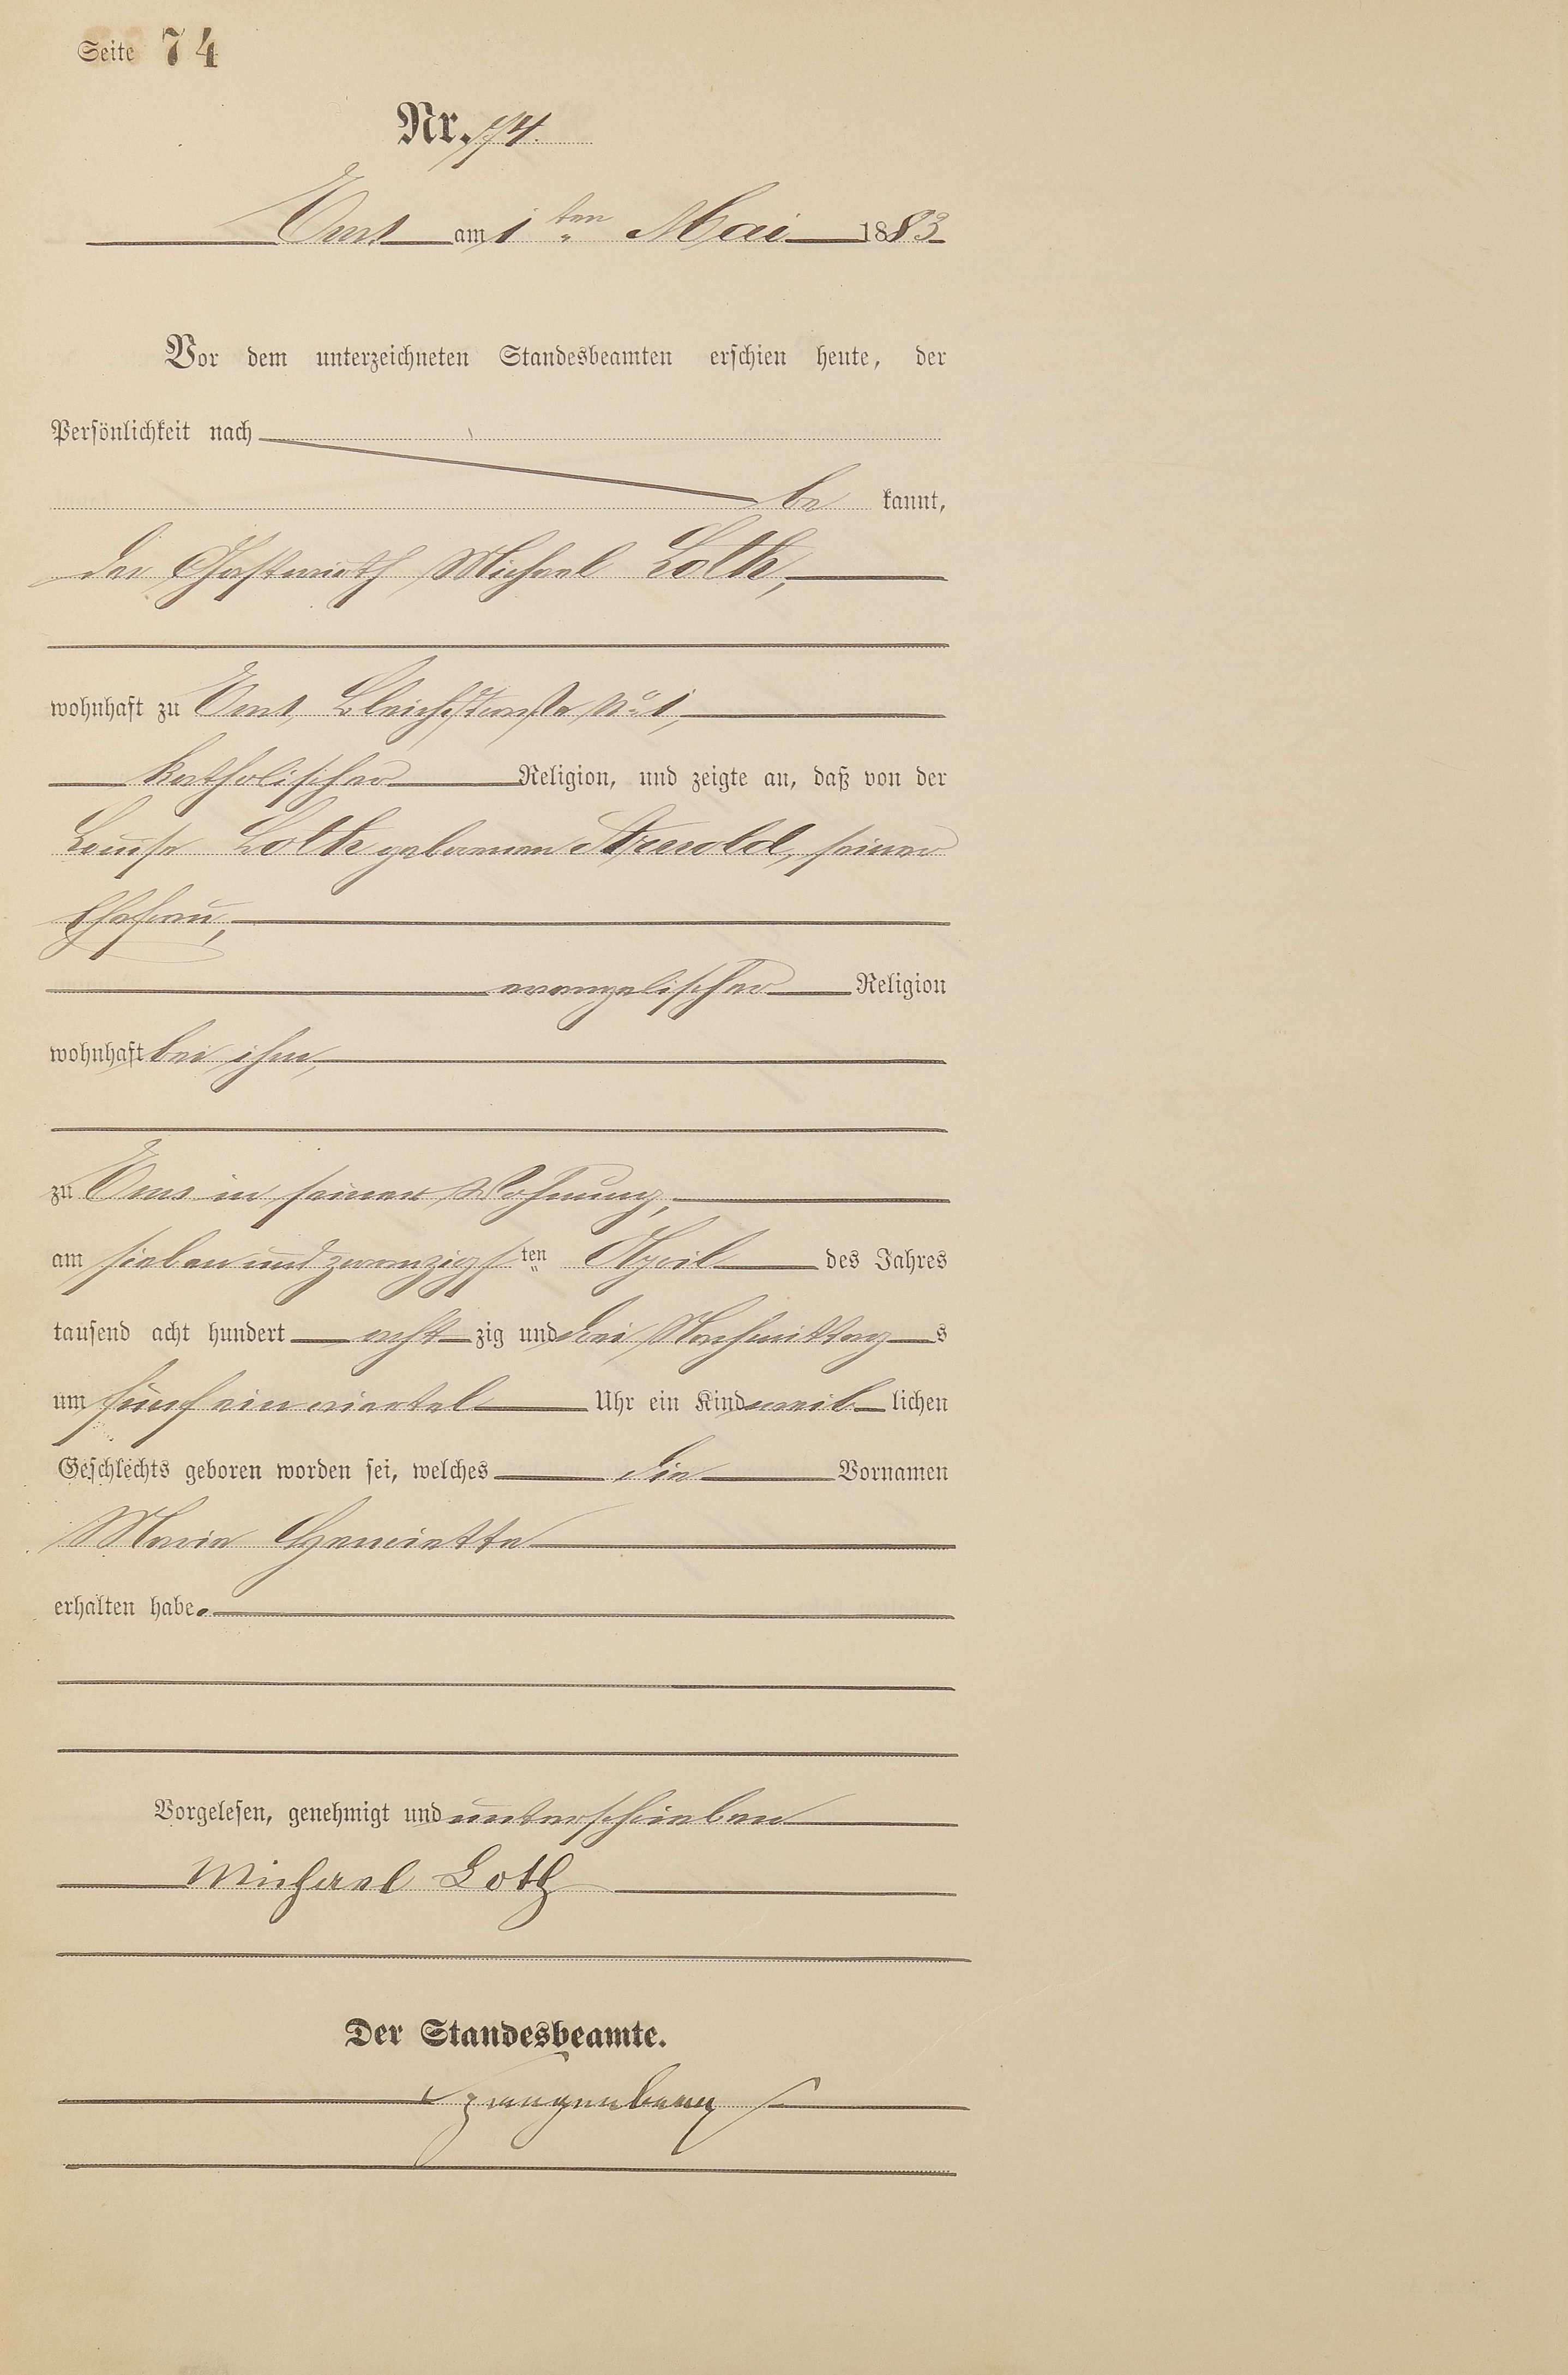 Seite 74
Nr. 74.
Ems am 1ten Mai 1883
Vor dem unterzeichneten Standesbeamten erschien heute, der
Persönlichkeit nach
be kannt,
der Gastwirth Michael Loth,
wohnhaft zu Ems, Bleichstraße No 1,
katholischer Religion, und zeigte an, daß von der
Louise Loth geborenen Arnold, seiner
Ehefrau,
evangelischer Religion
wohnhaft bei ihm,
zu Ems in seiner Wohnung,
am sieben und zwanzigsten April des Jahres
tausend acht hundert acht zig und drei Nachmittags
um fünf ein viertel Uhr ein Kind weiblichen
Geschlechts geboren worden sei, welches die Vornamen
Marie Henriette
erhalten habe.
Vorgelesen, genehmigt und unterschrieben
Michael Loth
Der Standesbeamte.
Spangenberg